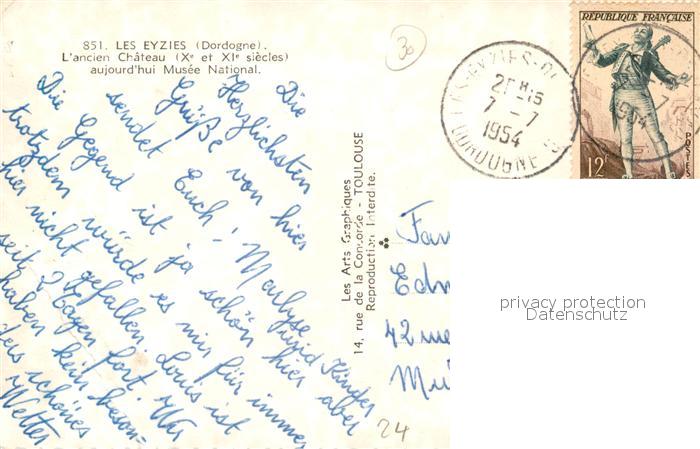 851. LES EYZIES (Dordogne).
L'ancien Château (Xe et XIe siècles)
aujourd'hui Musée National.
Die
Herzlichsten
Grüße von hier
sendet Euch
Die Gegend ist ja schön hier aber
trotzdem würde es mir für immer
hier nicht gefallen. Louis ist
seit 2 Tagen fort. Wir
haben kein beson-
ders schönes
Wetter
Les Arts Graphiques
14, rue de la Concorde - TOULOUSE
Reproduction Interdite.
30
LES-EYZIES-
7 - 7
1954
DORDOGNE
REPUBLIQUE FRANÇAISE
POSTES
12F
Fam
Edm
42
Mu
24
privacy protection
Datenschutz